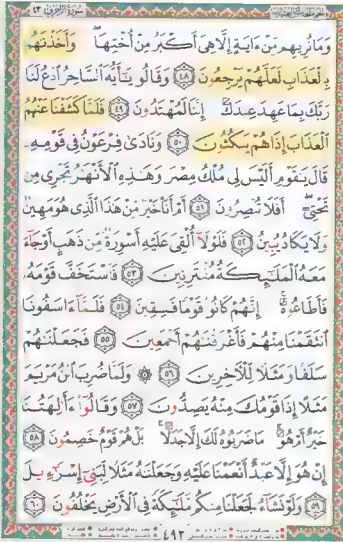 سورة الزخرف ٤٣
وَمَا نُرِيهِم مِّنْ ءَايَةٍ إِلَّا هِيَ أَكْبَرُ مِنْ أُخْتِهَا وَأَخَذْنَٰهُم
بِالْعَذَابِ لَعَلَّهُمْ يَرْجِعُونَ ﴿٤٨﴾ وَقَالُوا۟ يَٰٓأَيُّهَ السَّاحِرُ ادْعُ لَنَا
رَبَّكَ بِمَا عَهِدَ عِندَكَ إِنَّنَا لَمُهْتَدُونَ ﴿٤٩﴾ فَلَمَّا كَشَفْنَا عَنْهُمُ
الْعَذَابَ إِذَا هُمْ يَنكُثُونَ ﴿٥٠﴾ وَنَادَىٰ فِرْعَوْنُ فِي قَوْمِهِۦ
قَالَ يَٰقَوْمِ أَلَيْسَ لِي مُلْكُ مِصْرَ وَهَٰذِهِ الْأَنْهَٰرُ تَجْرِي مِن
تَحْتِيٓ أَفَلَا تُبْصِرُونَ ﴿٥١﴾ أَمْ أَنَا۠ خَيْرٌ مِّنْ هَٰذَا الَّذِي هُوَ مَهِينٌ
وَلَا يَكَادُ يُبِينُ ﴿٥٢﴾ فَلَوْلَآ أُلْقِيَ عَلَيْهِ أَسْوِرَةٌ مِّن ذَهَبٍ أَوْ جَآءَ
مَعَهُ الْمَلَٰٓئِكَةُ مُقْتَرِنِينَ ﴿٥٣﴾ فَاسْتَخَفَّ قَوْمَهُۥ
فَأَطَاعُوهُ إِنَّهُمْ كَانُوا۟ قَوْمًا فَٰسِقِينَ ﴿٥٤﴾ فَلَمَّآ ءَاسَفُونَا
انتَقَمْنَا مِنْهُمْ فَأَغْرَقْنَٰهُمْ أَجْمَعِينَ ﴿٥٥﴾ فَجَعَلْنَٰهُمْ
سَلَفًا وَمَثَلًا لِّلْءَاخِرِينَ ﴿٥٦﴾ ۞ وَلَمَّا ضُرِبَ ابْنُ مَرْيَمَ
مَثَلًا إِذَا قَوْمُكَ مِنْهُ يَصِدُّونَ ﴿٥٧﴾ وَقَالُوٓا۟ ءَأَٰلِهَتُنَا
خَيْرٌ أَمْ هُوَ مَا ضَرَبُوهُ لَكَ إِلَّا جَدَلًۢا بَلْ هُمْ قَوْمٌ خَصِمُونَ ﴿٥٨﴾
إِنْ هُوَ إِلَّا عَبْدٌ أَنْعَمْنَا عَلَيْهِ وَجَعَلْنَٰهُ مَثَلًا لِّبَنِيٓ إِسْرَٰٓءِيلَ
﴿٥٩﴾ وَلَوْ نَشَآءُ لَجَعَلْنَا مِنكُم مَّلَٰٓئِكَةً فِي الْأَرْضِ يَخْلُفُونَ ﴿٦٠﴾
٤٩٣